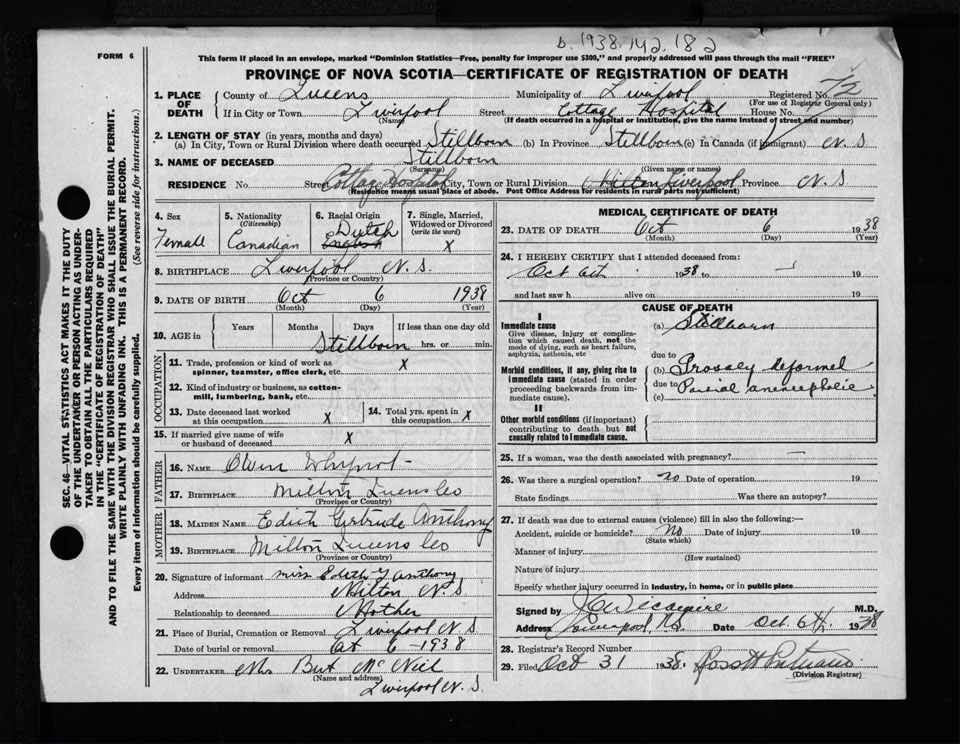 b. 1938. 142. 182
FORM 6
This form if placed in an envelope, marked "Dominion Statistics—Free, penalty for improper use $300," and properly addressed will pass through the mail "FREE"
PROVINCE OF NOVA SCOTIA—CERTIFICATE OF REGISTRATION OF DEATH
1. PLACE OF DEATH County of Queens Municipality of Liverpool Registered No.
(For use of Registrar General only)
If in City or Town Liverpool Street Cottage Hospital House No.
(Name) (If death occurred in a hospital or institution, give the name instead of street and number)
2. LENGTH OF STAY (in years, months and days)
(a) In City, Town or Rural Division where death occurred Stillborn (b) In Province Stillborn (c) In Canada (if immigrant) N S
3. NAME OF DECEASED Stillborn
(Surname) (Given name or names)
RESIDENCE No. Street Cottage Hospital City, Town or Rural Division Milton Liverpool Province N S
Residence means usual place of abode. Post Office Address for residents in rural parts not sufficient)
4. Sex Female
5. Nationality (Citizenship) Canadian
6. Racial Origin Dutch English
7. Single, Married, Widowed or Divorced (write the word) X
8. BIRTHPLACE Liverpool N. S.
(Province or Country)
9. DATE OF BIRTH Oct 6 1938
(Month) (Day) (Year)
10. AGE in Years Months Days If less than one day old
Stillborn hrs. or min.
OCCUPATION
11. Trade, profession or kind of work as spinner, teamster, office clerk, etc. X
12. Kind of industry or business, as cotton-mill, lumbering, bank, etc.
13. Date deceased last worked at this occupation X
14. Total yrs. spent in this occupation X
15. If married give name of wife or husband of deceased X
FATHER
16. NAME Owen Whynot
17. BIRTHPLACE Milton Queens Co
(Province or Country)
MOTHER
18. MAIDEN NAME Edith Gertrude Anthony
19. BIRTHPLACE Milton Queens Co
(Province or Country)
20. Signature of informant Miss Edith G Anthony
Address Milton N. S
Relationship to deceased Mother
21. Place of Burial, Cremation or Removal Liverpool N S
Date of burial or removal Oct 6 - 1938
22. UNDERTAKER Mrs Bert McNeil
(Name and address)
Liverpool N. S.
MEDICAL CERTIFICATE OF DEATH
23. DATE OF DEATH Oct 6 1938
(Month) (Day) (Year)
24. I HEREBY CERTIFY that I attended deceased from:
Oct 6th 1938 to — 19
and last saw h alive on 19
CAUSE OF DEATH
I
Immediate cause
Give disease, injury or complication which caused death, not the mode of dying, such as heart failure, asphyxia, asthenia, etc
(a) Stillborn
due to
Morbid conditions, if any, giving rise to immediate cause (stated in order proceeding backwards from immediate cause).
(b) Grossly deformed
due to
(c) Partial anencephalic
II
Other morbid conditions (if important) contributing to death but not causally related to immediate cause.
25. If a woman, was the death associated with pregnancy? —
26. Was there a surgical operation? no Date of operation 19
State findings Was there an autopsy?
27. If death was due to external causes (violence) fill in also the following:—
Accident, suicide or homicide? No Date of injury 19
(State which)
Manner of injury
(How sustained)
Nature of injury
Specify whether injury occurred in industry, in home, or in public place
Signed by M.D.
Address Liverpool, N.S. Date Oct. 6th. 1938
28. Registrar's Record Number
29. Filed Oct 31 1938.
(Division Registrar)
SEC. 46—VITAL STATISTICS ACT MAKES IT THE DUTY
OF THE UNDERTAKER OR PERSON ACTING AS UNDER-
TAKER TO OBTAIN ALL THE PARTICULARS REQUIRED
IN THE "CERTIFICATE OF REGISTRATION OF DEATH"
AND TO FILE THE SAME WITH THE DIVISION REGISTRAR WHO SHALL ISSUE THE BURIAL PERMIT.
WRITE PLAINLY WITH UNFADING INK. THIS IS A PERMANENT RECORD.
Every item of information should be carefully supplied. (See reverse side for instructions.)